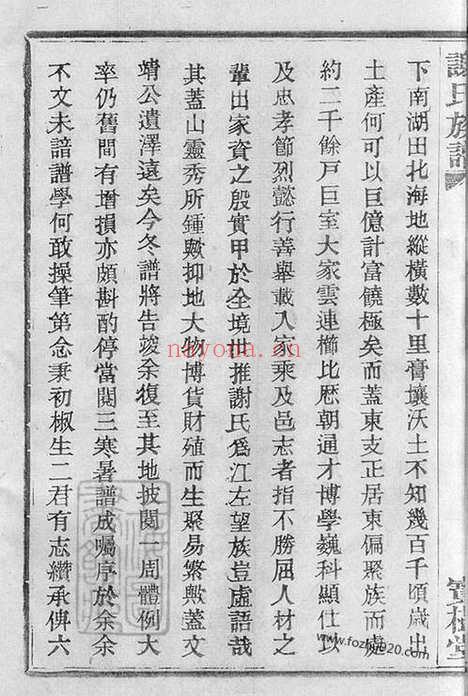 謝氏族譜
寶樹堂
下南湖田北海地縱橫數十里膏壤沃土不知幾百千頃歲出
土產何可以巨億計富饒極矣而蓋東支正居東偏聚族而處
約二千餘戶巨室大家雲連櫛比歷朝通才博學巍科顯仕以
及忠孝節烈懿行善舉載入家乘及邑志者指不勝屈人材之
輩出家資之殷實甲於全境世推謝氏爲江左望族豈虛語哉
其蓋山靈秀所鍾歟抑地大物博貨財殖而生聚易繁歟蓋文
靖公遺澤遠矣今冬譜將告竣余復至其地披閱一周體例大
率仍舊間有增損亦頗斟酌停當閱三寒暑譜成囑序於余余
不文未諳譜學何敢操筆第念秉初椒生二君有志纘承俾六
nayona.cn
www.fozhu920.com